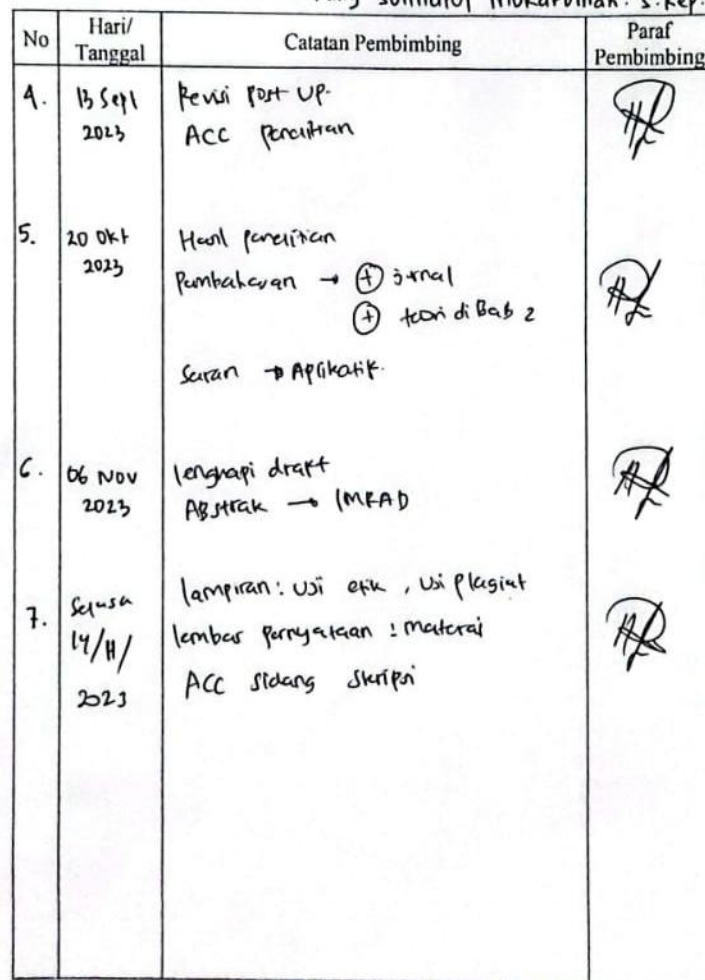 S.Kep.
No Hari/ Tanggal Catatan Pembimbing Paraf Pembimbing
4. 13 Sept 2023 Revisi Post UP.
ACC Penelitian
5. 20 Okt 2023 Hasil penelitian
Pembahasan → + jurnal
+ teori di Bab 2
Saran → Aplikatif.
6. 06 Nov 2023 lengkapi draft
Abstrak → IMRAD
7. Selasa 14/11/2023 lampiran : Uji etik , Uji Plagiat
lembar pernyataan : materai
ACC sidang skripsi